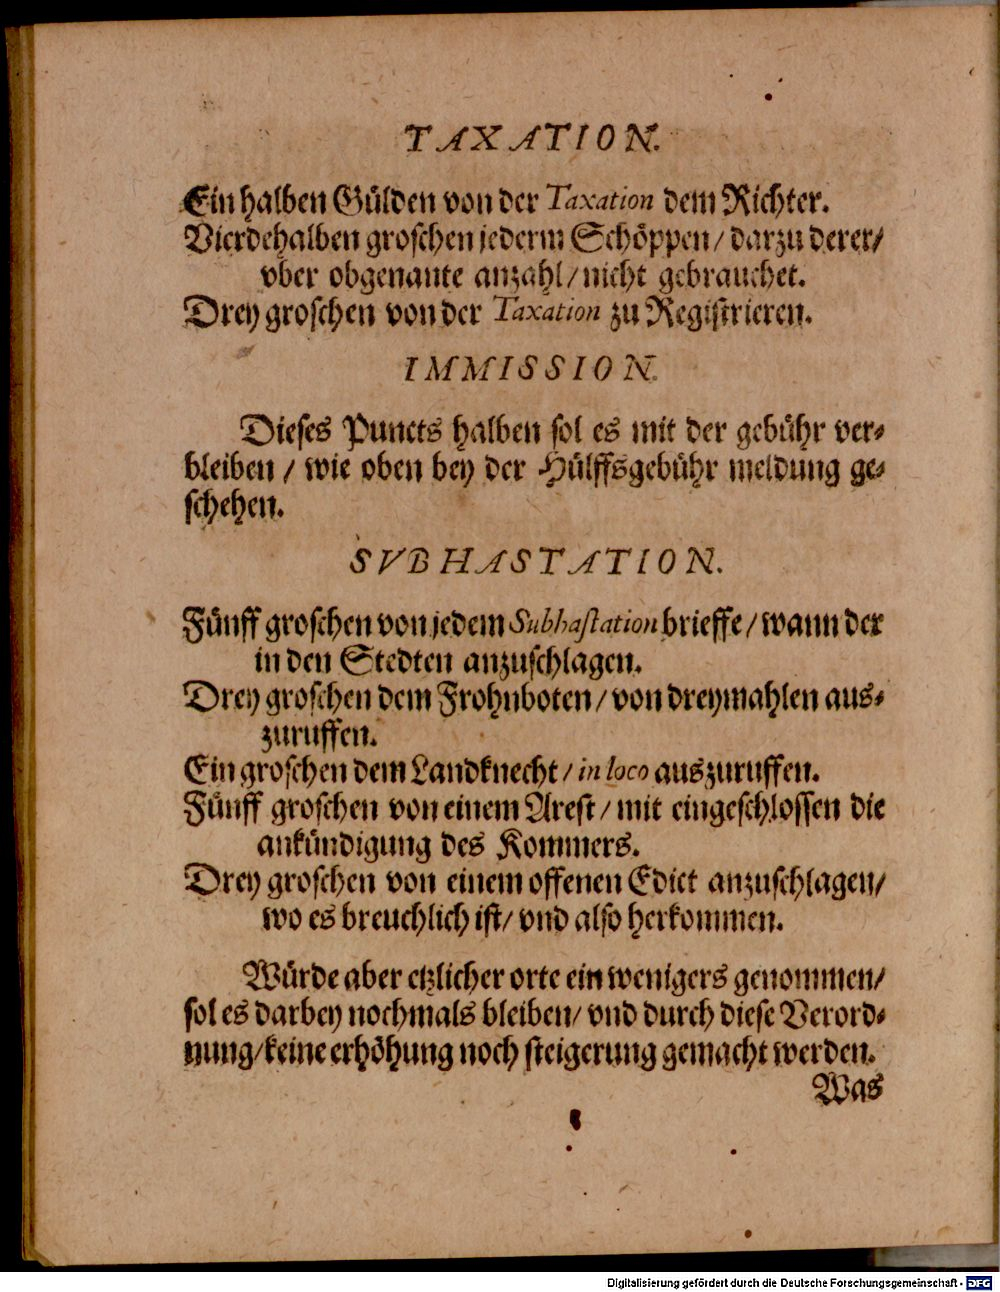 TAXATION.
Ein halben Gülden von der Taxation dem Richter.
Vierdehalben groschen jederm Schöppen / darzu derer /
vber obgenante anzahl / nicht gebrauchet.
Drey groschen von der Taxation zu Registrieren.
IMMISSION.
Dieses Puncts halben sol es mit der gebühr ver⸗
bleiben / wie oben bey der Hülffsgebühr meldung ge⸗
schehen.
SVBHASTATION.
Fünff groschen von jedem Subhastation brieffe / wann der
in den Stedten anzuschlagen.
Drey groschen dem Frohnboten / von dreymahlen aus⸗
zuruffen.
Ein groschen dem Landknecht / in loco auszuruffen.
Fünff groschen von einem Arest / mit eingeschlossen die
ankündigung des Kommers.
Drey groschen von einem offenen Edict anzuschlagen /
wo es breuchlich ist / vnd also herkommen.
Würde aber etzlicher orte ein wenigers genommen /
sol es darbey nochmals bleiben / vnd durch diese Verord⸗
nung / keine erhöhung noch steigerung gemacht werden.
Was
Digitalisierung gefördert durch die Deutsche Forschungsgemeinschaft - DFG